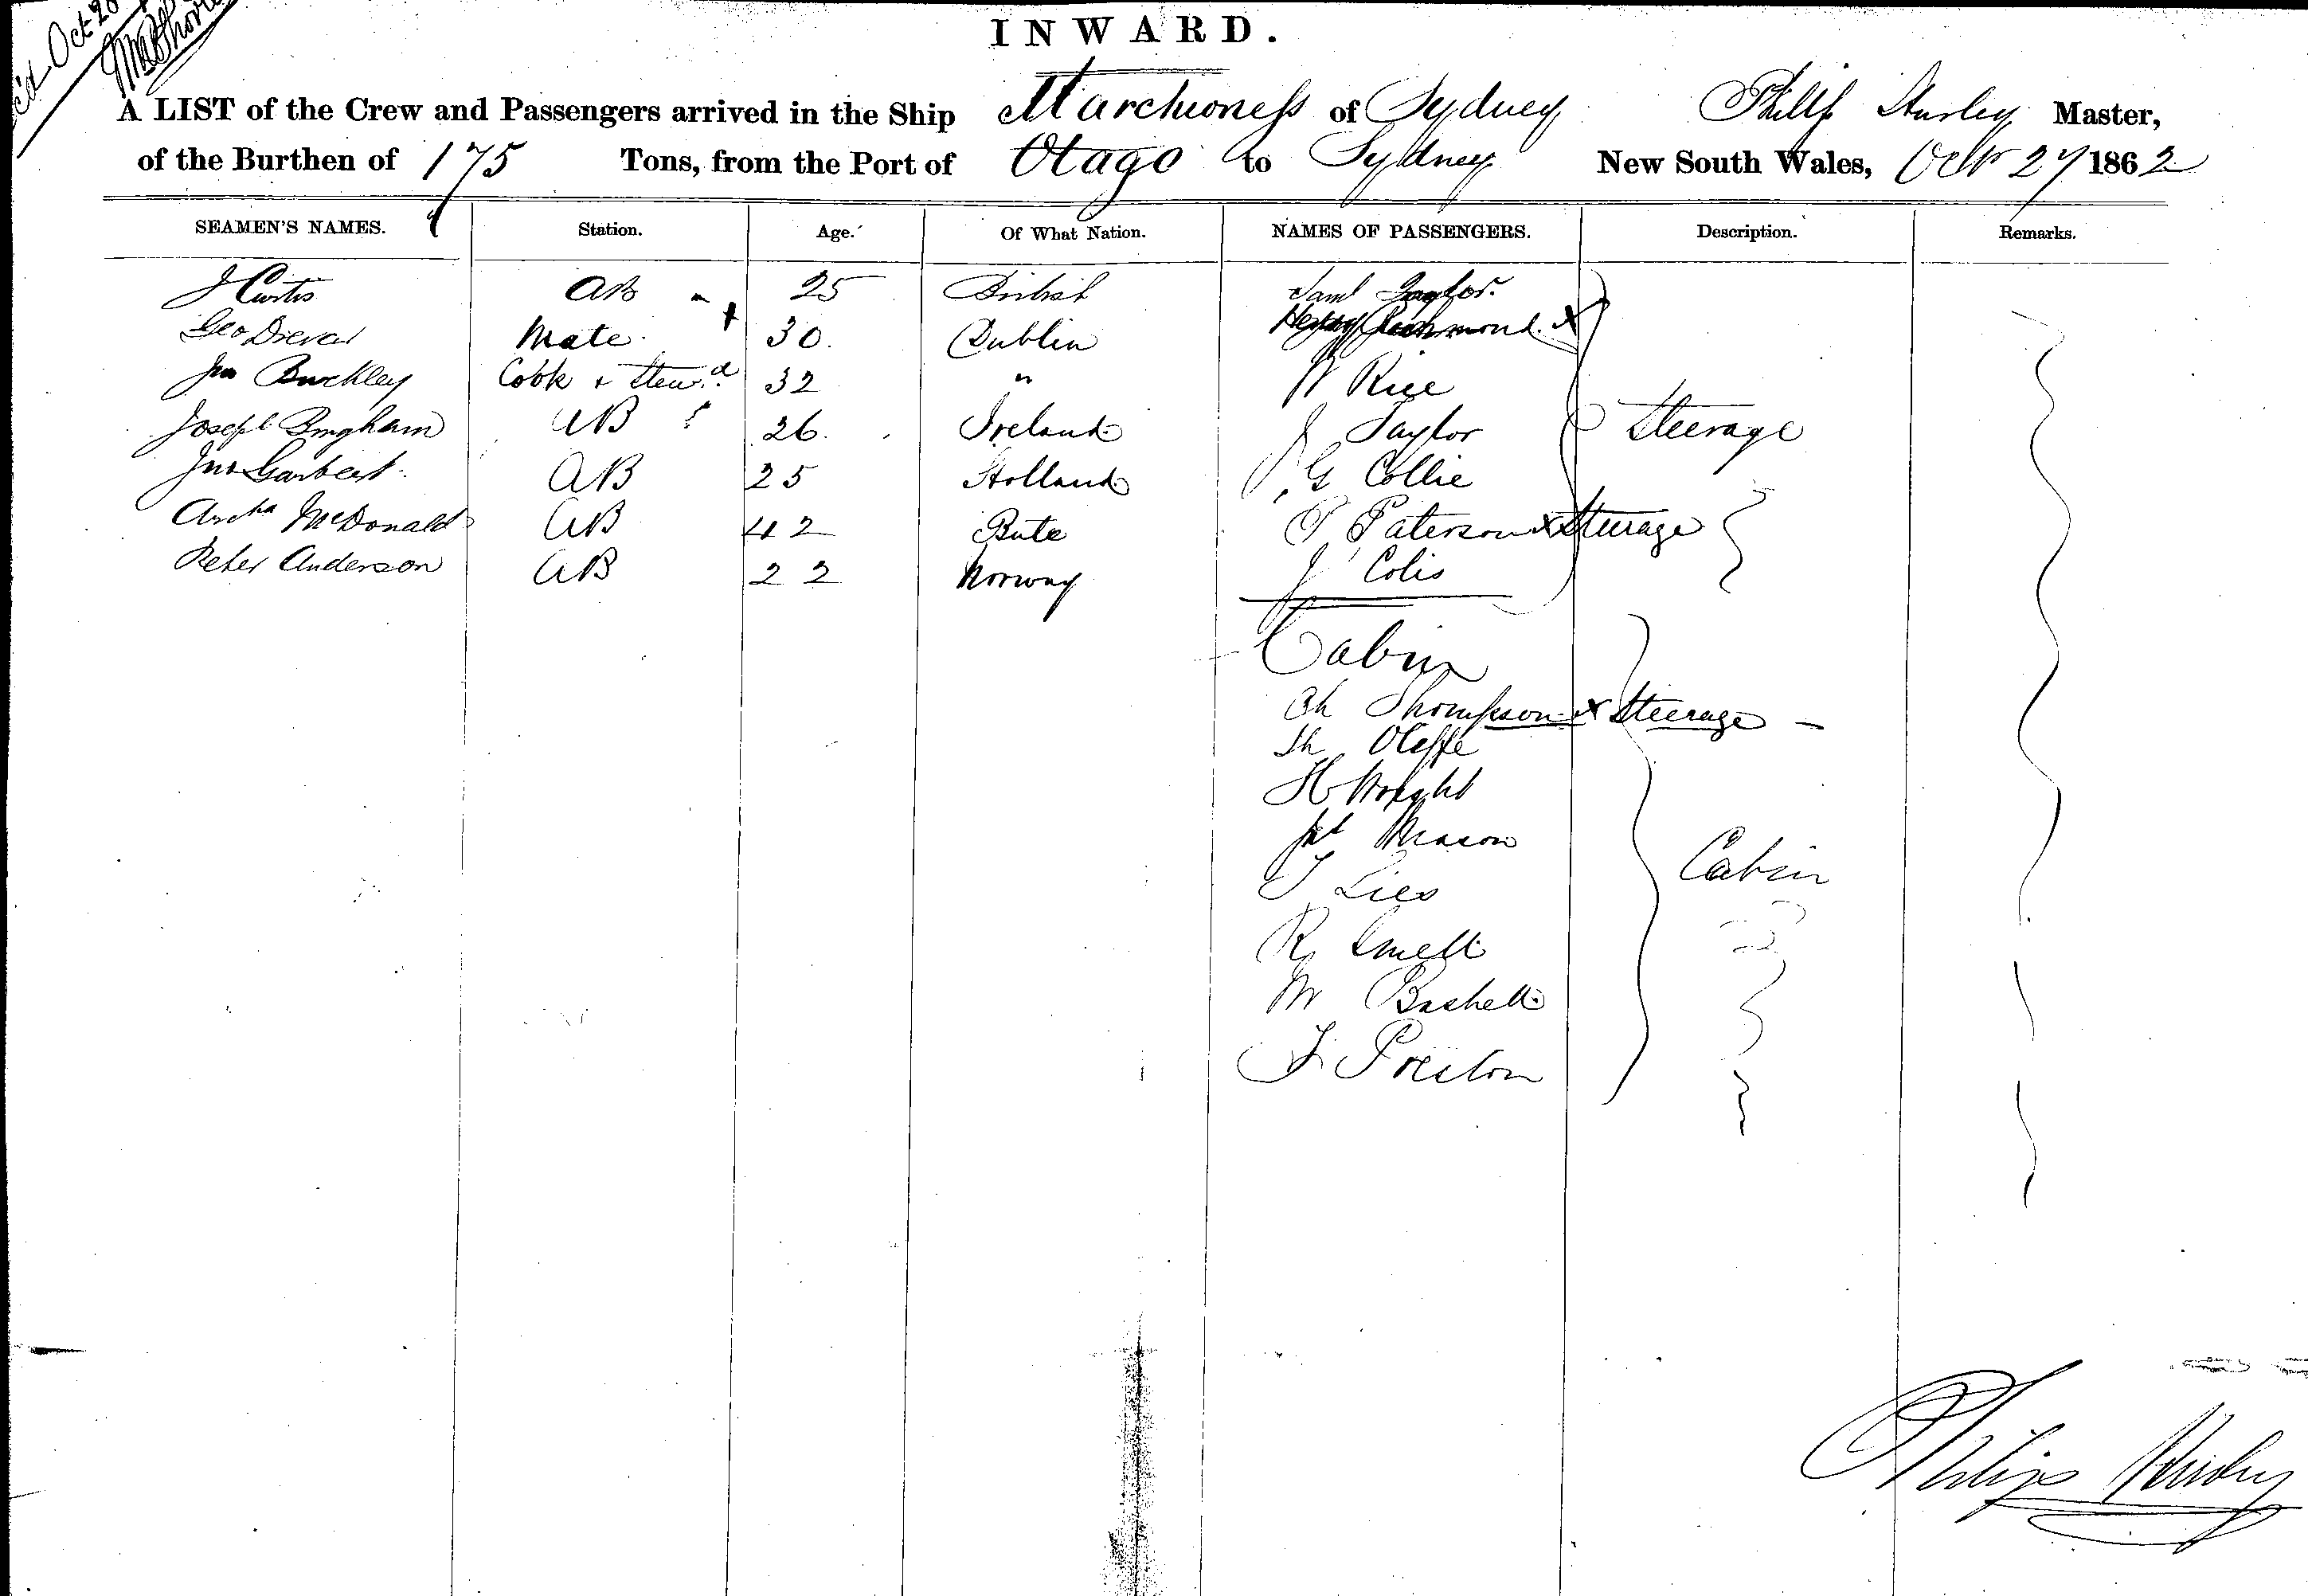 Oct 28
INWARD.
A LIST of the Crew and Passengers arrived in the Ship Marchioness of Sydney Philip Hurley Master,
of the Burthen of 175 Tons, from the Port of Otago to Sydney New South Wales, Octr 27 1862
SEAMEN'S NAMES. Station. Age. Of What Nation. NAMES OF PASSENGERS. Description. Remarks.
J Curtis AB 25 British Saml Taylor.
Geo Mate 30. Dublin Richmond. x
Jno Buckley Cook + Stewd 32 " W Rice
Joseph Bingham AB 26. Ireland J Taylor Steerage
Jno Garbert AB 25 Holland G Collie
Archd McDonald AB 42 Bute P Paterson x Steerage
Peter Anderson AB 22 Norway J Colis
Cabin
Ch Thompson x Steerage
H Wright
Mason
Cabin
T Lies
R Smell
W
J Preston
Philip Hurley